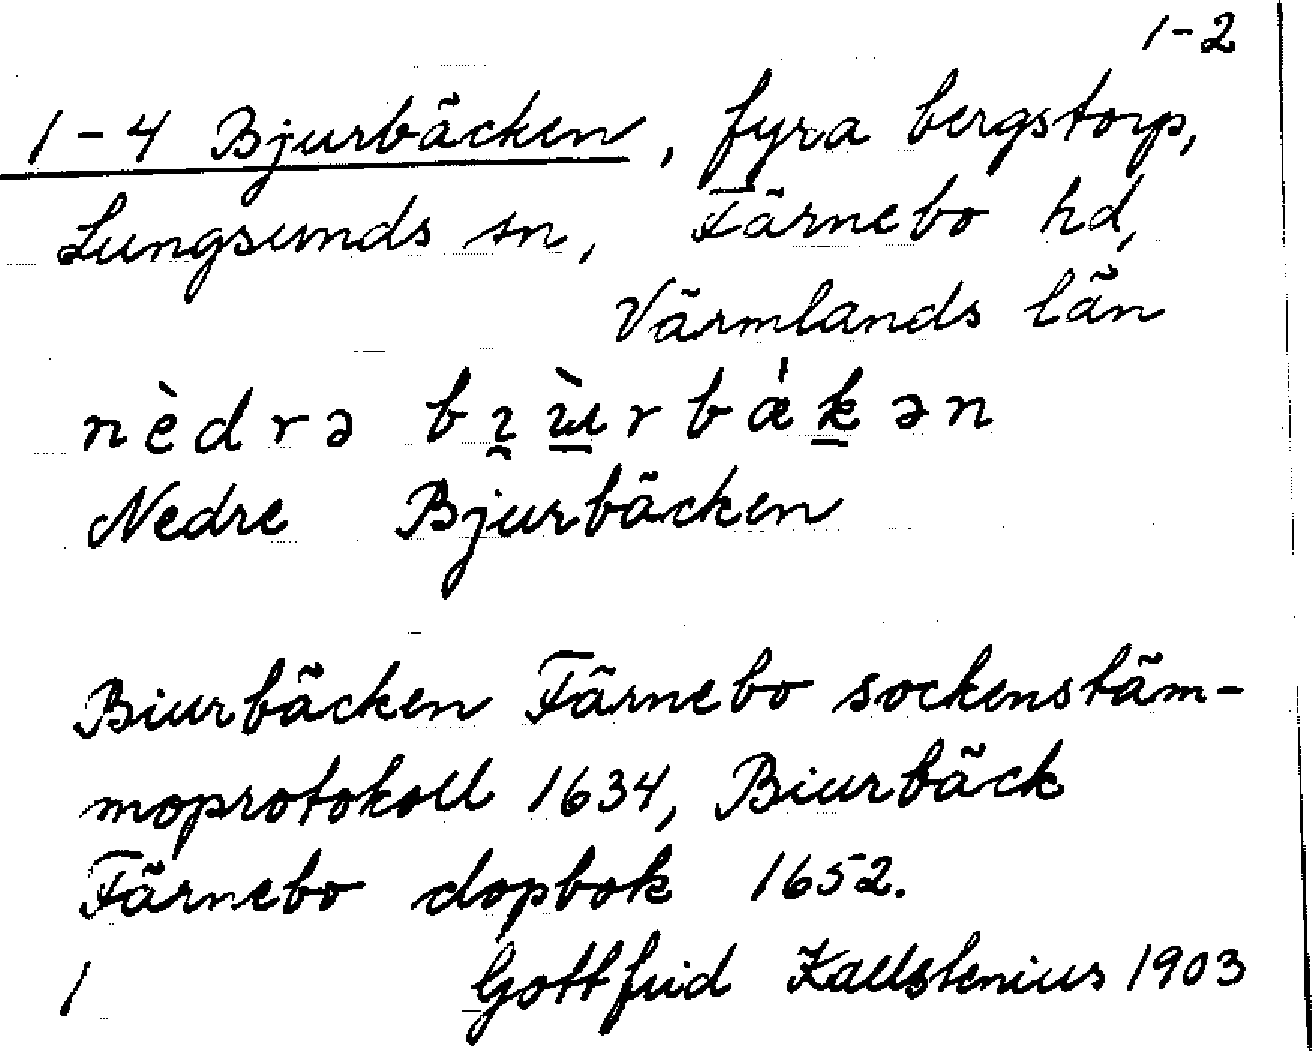 1-2
1-4 Bjurbäcken, fyra bergstorp,
Lungsunds sn, Färnebo hd,
Värmlands län
nèdrə bɪ̯ɯ̀rbákən
Nedre Bjurbäcken
Biurbäcken Färnebo sockenstäm-
moprotokoll 1634, Biurbäck
Färnebo dopbok 1652.
1 Gottfrid Kallstenius 1903